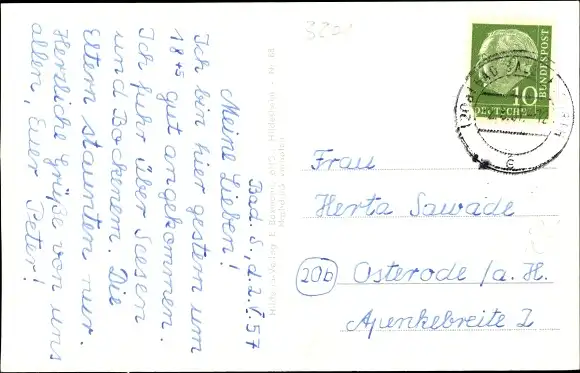 Bad. S., d. 2.V.57
Meine Lieben!
Ich bin hier gestern um
18⁴⁵ gut angekommen.
Ich fuhr über Seesen
und Bockenem. Die
Eltern staunten nur.
Herzliche Grüße von uns
allen, Euer Peter!
Frau
Herta Sawade
20b Osterode /a. H.
Apenkebreite 2
10
DEUTSCHE
BUNDESPOST
c